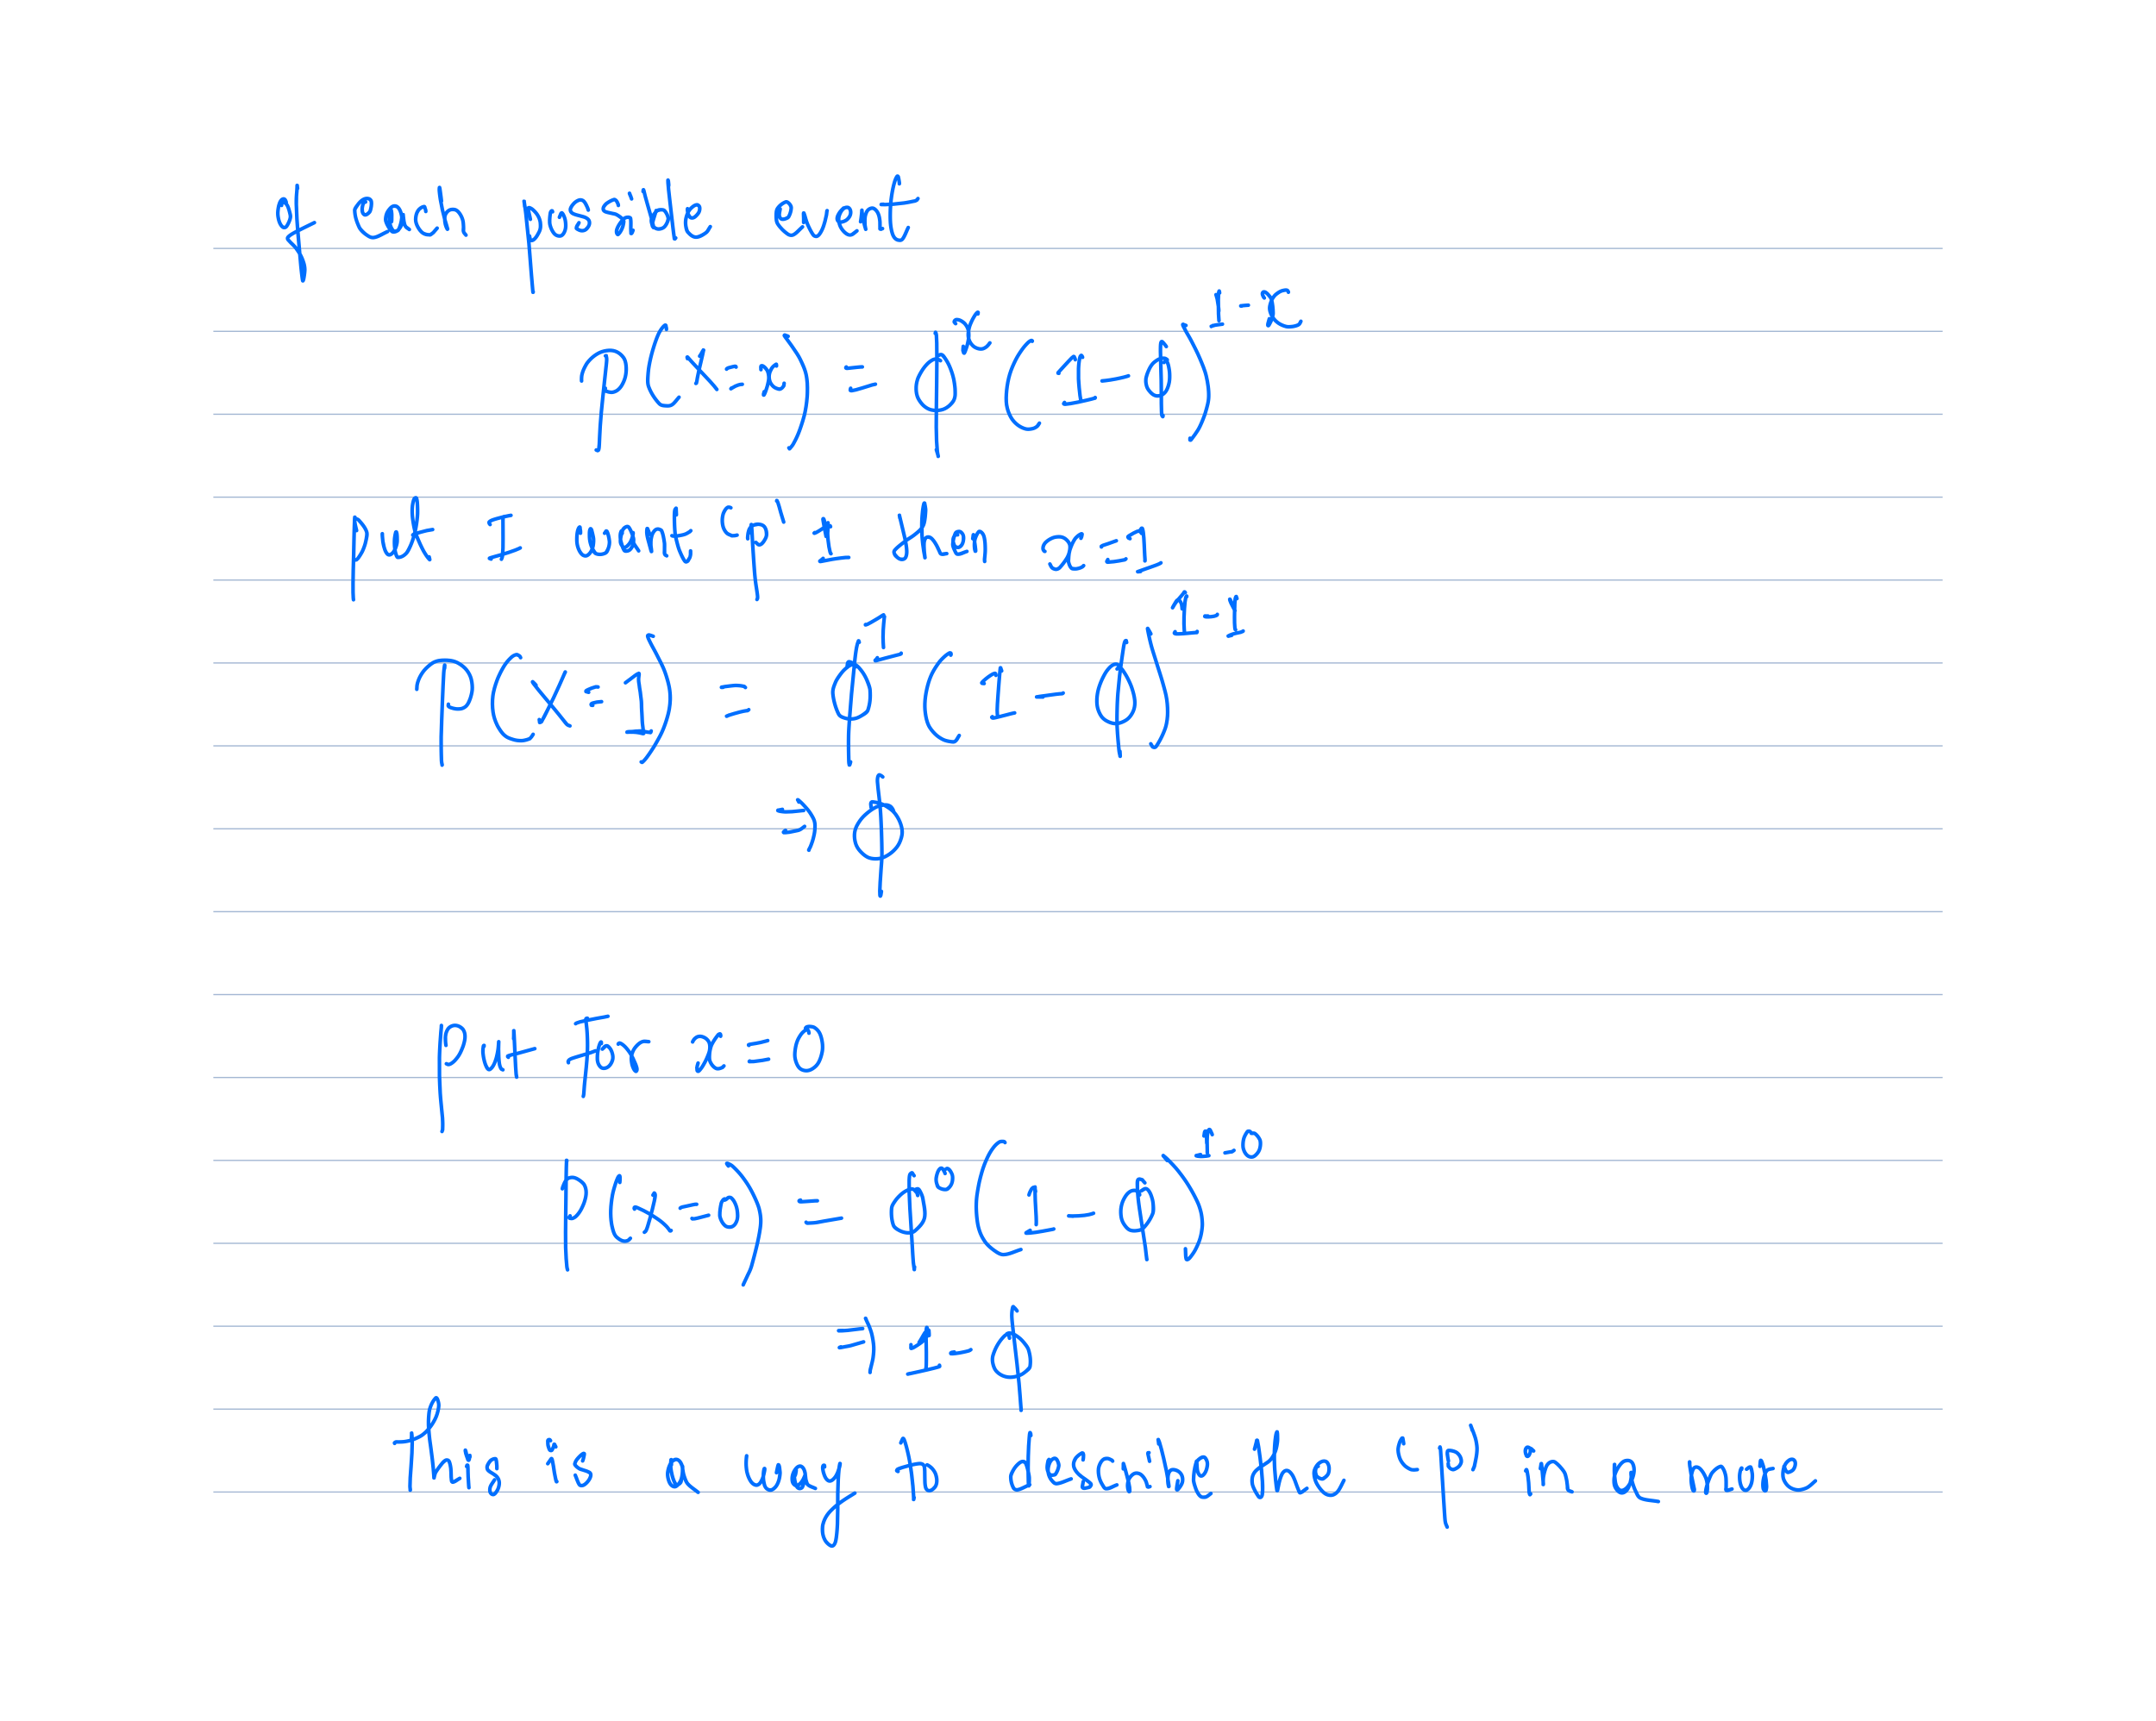 of each possible event
P(X=x) = ϕ^x (1-ϕ)^{1-x}
put I want (p) I then x=1
P(X=1) = ϕ^1 (1-ϕ)^{1-1}
⇒ ϕ
Put For x=0
P(X=0) = ϕ^0 (1-ϕ)^{1-0}
⇒ 1-ϕ
This is a way to describe the (p) in a more